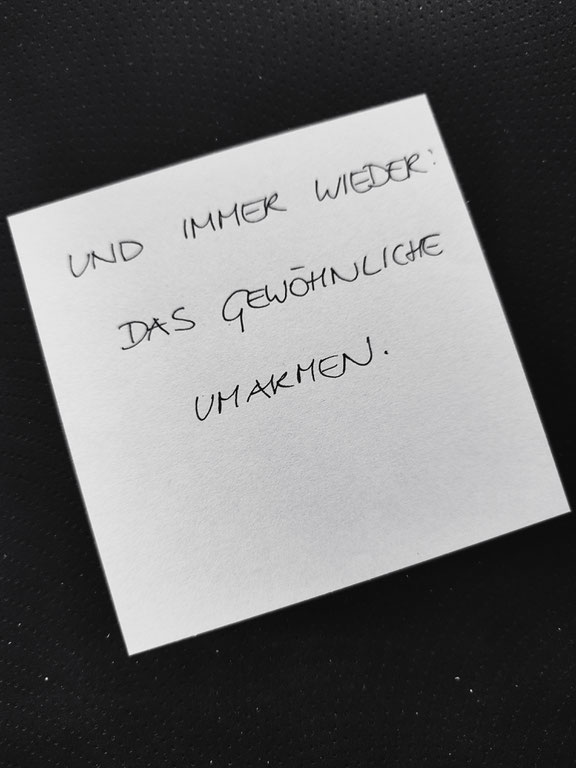 UND IMMER WIEDER:
DAS GEWÖHNLICHE
UMARMEN.